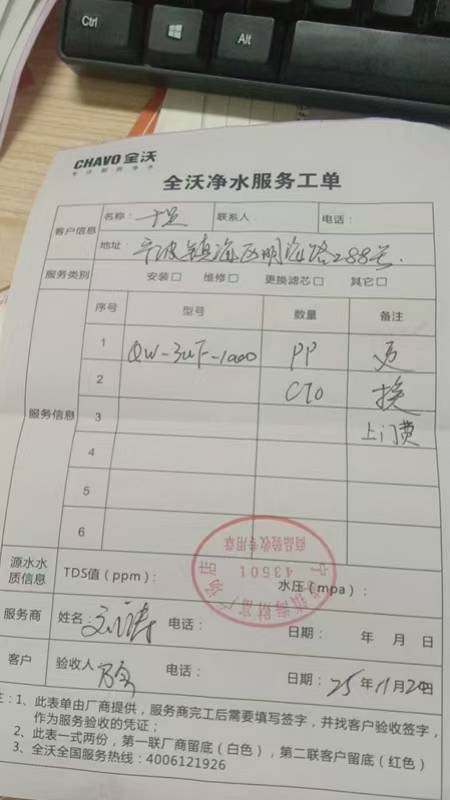 Ctrl
Alt
CHAVO 全沃
全沃净水服务工单
客户信息
名称：
联系人
电话：
地址：宁波镇海区明海路288号.
服务类别
安装□ 维修□ 更换滤芯□ 其它□
服务信息
序号 型号 数量 备注
1 QW-3UF-1000 PP 更
2 CTO 换
3 上门费
4
5
6
源水水质信息
TDS值（ppm）： 水压（mpa）：
商品验收专用章
43501
服务商
姓名： 电话： 日期： 年 月 日
客户
验收人 电话： 日期：25年11月20日
注：1、此表单由厂商提供，服务商完工后需要填写签字，并找客户验收签字，
作为服务验收的凭证；
2、此表一式两份，第一联厂商留底（白色），第二联客户留底（红色）
3、全沃全国服务热线：4006121926